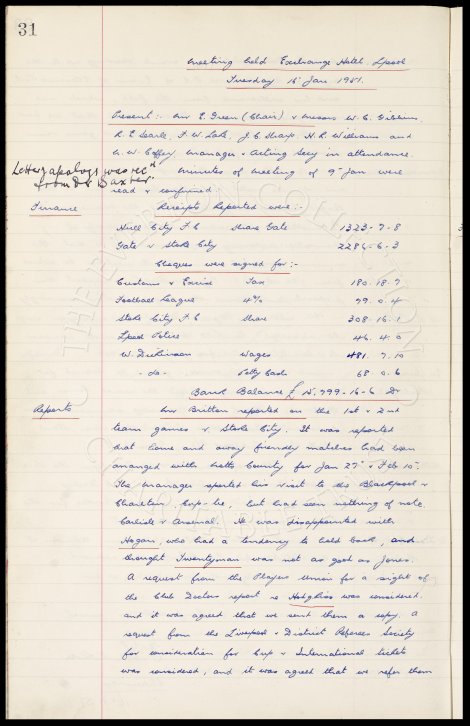 31
Meeting held Exchange Hotel L'pool
Tuesday 16 Jan 1951.
Present:- Mr E. Green (Chair) & Messrs W. C.
R. E. Searle, F. W. Lake, J. C. Sharp, H. R. Williams and
Manager & Acting Secy in attendance.
Letter of apology was recd
from Dr Baxter
Minutes of meeting of 9th Jan were
read & confirmed
Finance
Receipts Reported were:-
Hull City F C Share Gate 1323-7-8
Gate v Stoke City 2286-6-3
Cheques were signed for:-
Customs & Excise Tax 180.18.7
Football League 4% 79.0.4
Stoke City F C Share 308.16.1
L'pool Police 46.4.0
W. Dickinson Wages 481.7.10
-do- Petty Cash 68.0.6
Bank Balance £15,799-16-6 Dr
Reports
Mr Britton reported on the 1st & 2nd
team games v Stoke City. It was reported
that home and away friendly matches had been
arranged with Notts County for Jan 27th & Feb 10th.
The Manager reported his visit to the Blackpool v
Charlton Cup-tie, but had seen nothing of note.
Carlisle v Arsenal. He was disappointed with
Hogan, who had a tendency to hold back, and
thought Twentyman was not as good as Jones.
A request from the Players Union for a sight of
the Club Doctors report re Hodgkiss was considered
and it was agreed that we sent them a copy. A
request from the Liverpool & District Referees Society
for consideration for Cup & International tickets
was considered, and it was agreed that we refer them
THE EVERTON COLLECTION